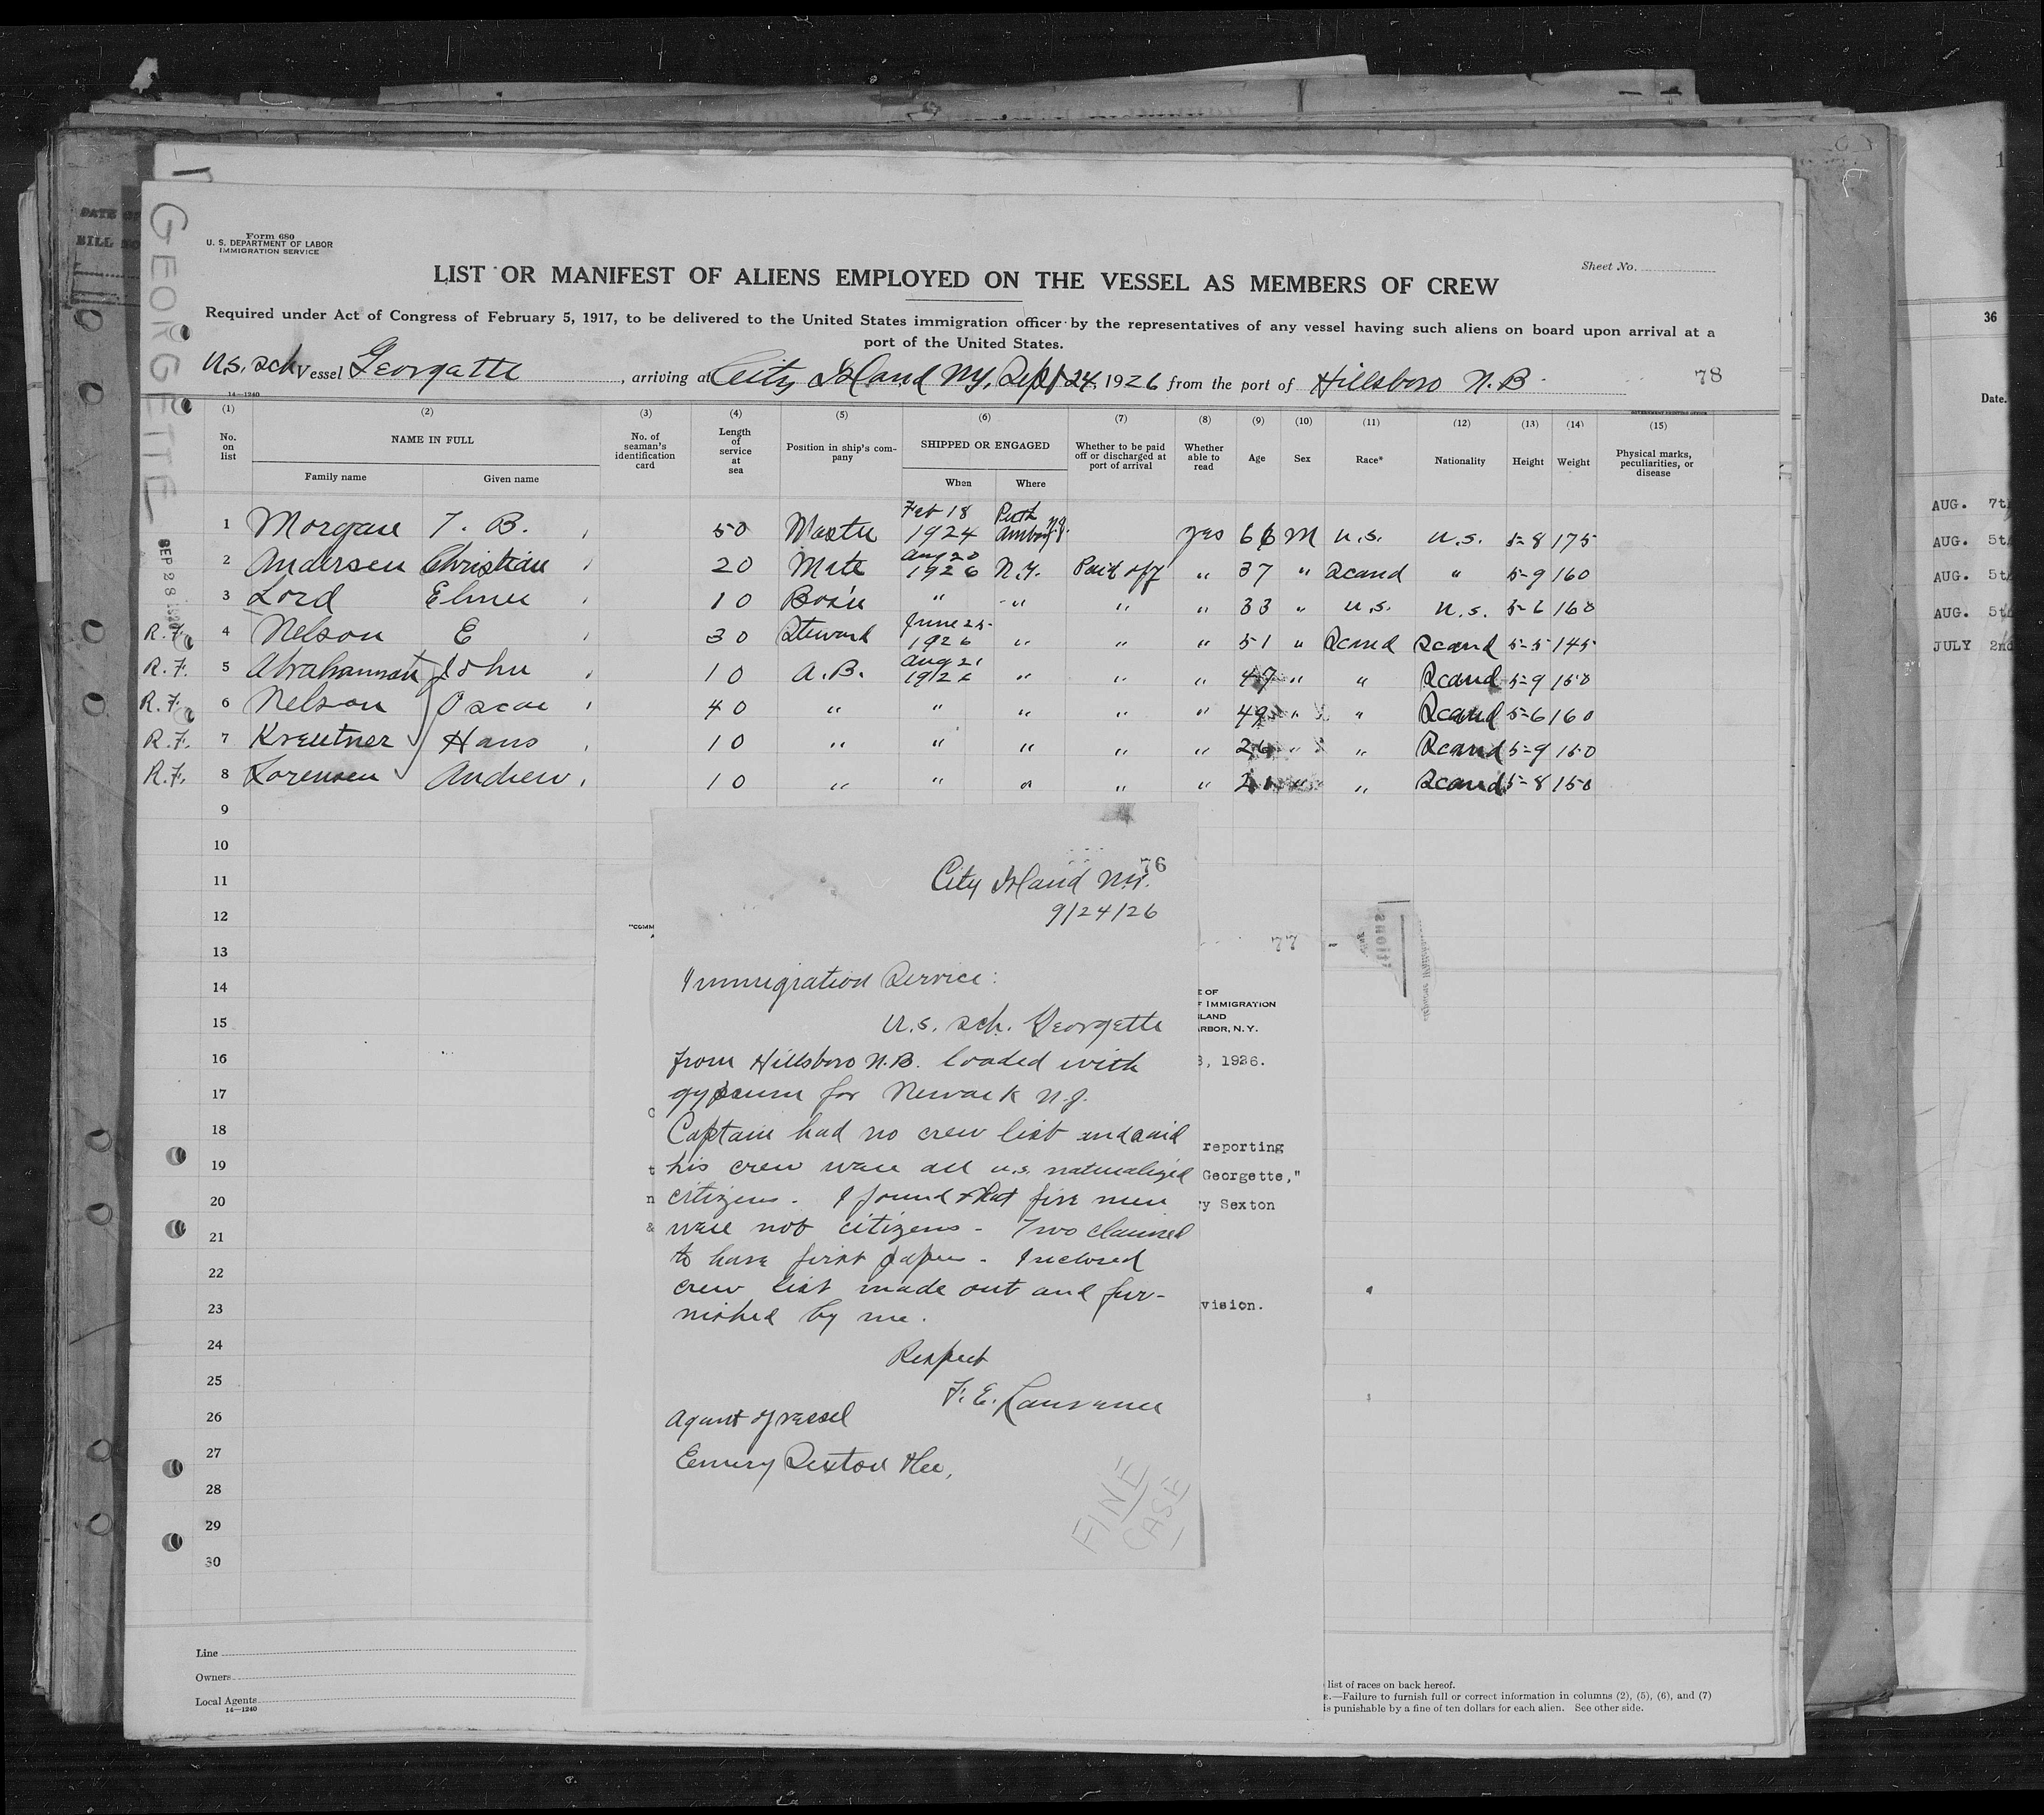 GEORGETTE
SEP 28 1926
DATE OF
BILL NO
Form 680
U. S. DEPARTMENT OF LABOR
IMMIGRATION SERVICE
Sheet No.
LIST OR MANIFEST OF ALIENS EMPLOYED ON THE VESSEL AS MEMBERS OF CREW
Required under Act of Congress of February 5, 1917, to be delivered to the United States immigration officer by the representatives of any vessel having such aliens on board upon arrival at a
port of the United States.
U.S. Sch Vessel Georgette, arriving at City Island NY, Sept 24, 1926 from the port of Hillsboro N.B.
78
14—1240
GOVERNMENT PRINTING OFFICE
(1) (2) (3) (4) (5) (6) (7) (8) (9) (10) (11) (12) (13) (14) (15)
No. on list NAME IN FULL No. of seaman's identification card Length of service at sea Position in ship's company SHIPPED OR ENGAGED Whether to be paid off or discharged at port of arrival Whether able to read Age Sex Race* Nationality Height Weight Physical marks, peculiarities, or disease
Family name Given name When Where
1 Morgan T. B. 50 Master Feb 18 1924 Perth Amboy N.J. yes 66 M U.S. U.S. 5-8 175
2 Andersen Christian 20 Mate Aug 20 1926 N.Y. Paid off " 37 " Scand " 5-9 160
3 Lord Elmer 10 Bos'n " " " " 33 " U.S. U.S. 5-6 160
R.F. 4 Nelson E 30 Steward June 25 1926 " " " 51 " Scand Scand 5-5 145
R.F. 5 John 10 A.B. Aug 21 1926 " " " 47 " " Scand 5-9 150
R.F. 6 Nelson Oscar 40 " " " " " 49 " " Scand 5-6 160
R.F. 7 Kreutner Hans 10 " " " " " 26 " " Scand 5-9 150
R.F. 8 Lorensen Andrew 10 " " " " " " " Scand 5-8 150
9
10
11
12
13
14
15
16
17
18
19
20
21
22
23
24
25
26
27
28
29
30
76
City Island N.Y.
9/24/26
Immigration Service:
U.S. Sch. Georgette
from Hillsboro N.B. loaded with
gypsum for Newark N.J.
Captain had no crew list and said
his crew were all U.S. naturalized
citizens. I found that five men
were not citizens - Two claimed
to have first papers. Inclosed
crew list made out and fur-
nished by me.
Respect
F. E.
Agent of vessel
Emery Sexton
FINE
CASE
"COMM
77
E OF
F IMMIGRATION
LAND
RBOR, N. Y.
, 1926.
reporting
Georgette,"
y Sexton
vision.
Line
Owners
Local Agents
14—1240
list of races on back hereof.
E.—Failure to furnish full or correct information in columns (2), (5), (6), and (7)
is punishable by a fine of ten dollars for each alien. See other side.
36
Date.
AUG. 7t
AUG. 5t
AUG. 5t
AUG. 5t
JULY 2nd